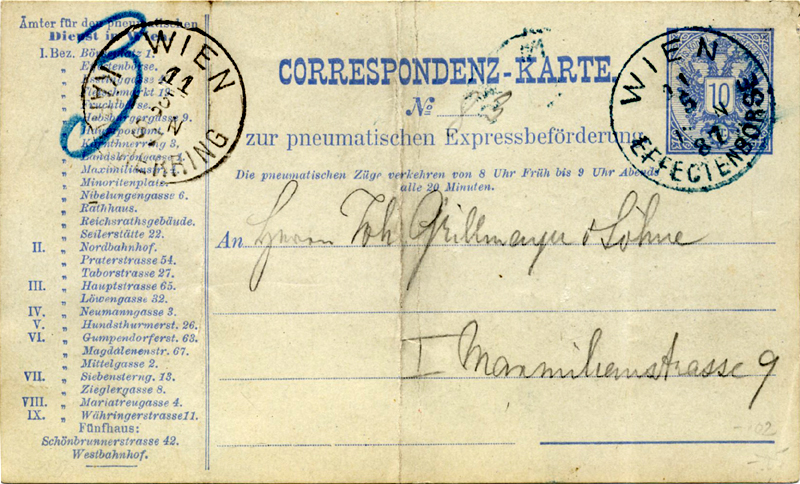 Ämter für den pneumatischen
Dienst in Wien.
I. Bez. Börseplatz 1.
„ Effectenbörse.
„ Fleischmarkt 19.
„ Fruchtbörse.
„ Habsburgergasse 9.
„ Hauptpostamt.
„ Kärnthnerring 3,
„ Landskrongasse
„ Maximilianstr.
„ Minoritenplatz.
„ Nibelungengasse 6.
„ Rathhaus.
„ Reichsrathsgebäude.
„ Seilerstätte 22.
II. „ Nordbahnhof.
„ Praterstrasse 54.
„ Taborstrasse 27.
III. „ Hauptstrasse 65.
„ Löwengasse 32.
IV. „ Neumanngasse 3.
V. „ Hundsthurmerst. 26.
VI. „ Gumpendorferst. 63.
„ Magdalenenstr. 67.
„ Mittelgasse 2.
VII. „ Siebensterng. 13.
„ Zieglergasse 8.
VIII. „ Mariatreugasse 4.
IX. „ Währingerstrasse 11.
Fünfhaus:
Schönbrunnerstrasse 42.
Westbahnhof.
WIEN
WÄHRING
CORRESPONDENZ-KARTE.
No
zur pneumatischen Expressbeförderung
Die pneumatischen Züge verkehren von 8 Uhr Früh bis 9 Uhr Abends
alle 20 Minuten.
WIEN
87
EFFECTENBÖRSE
10
An Herrn Joh. Grillmayer & Söhne
I Maxmilianstrasse 9